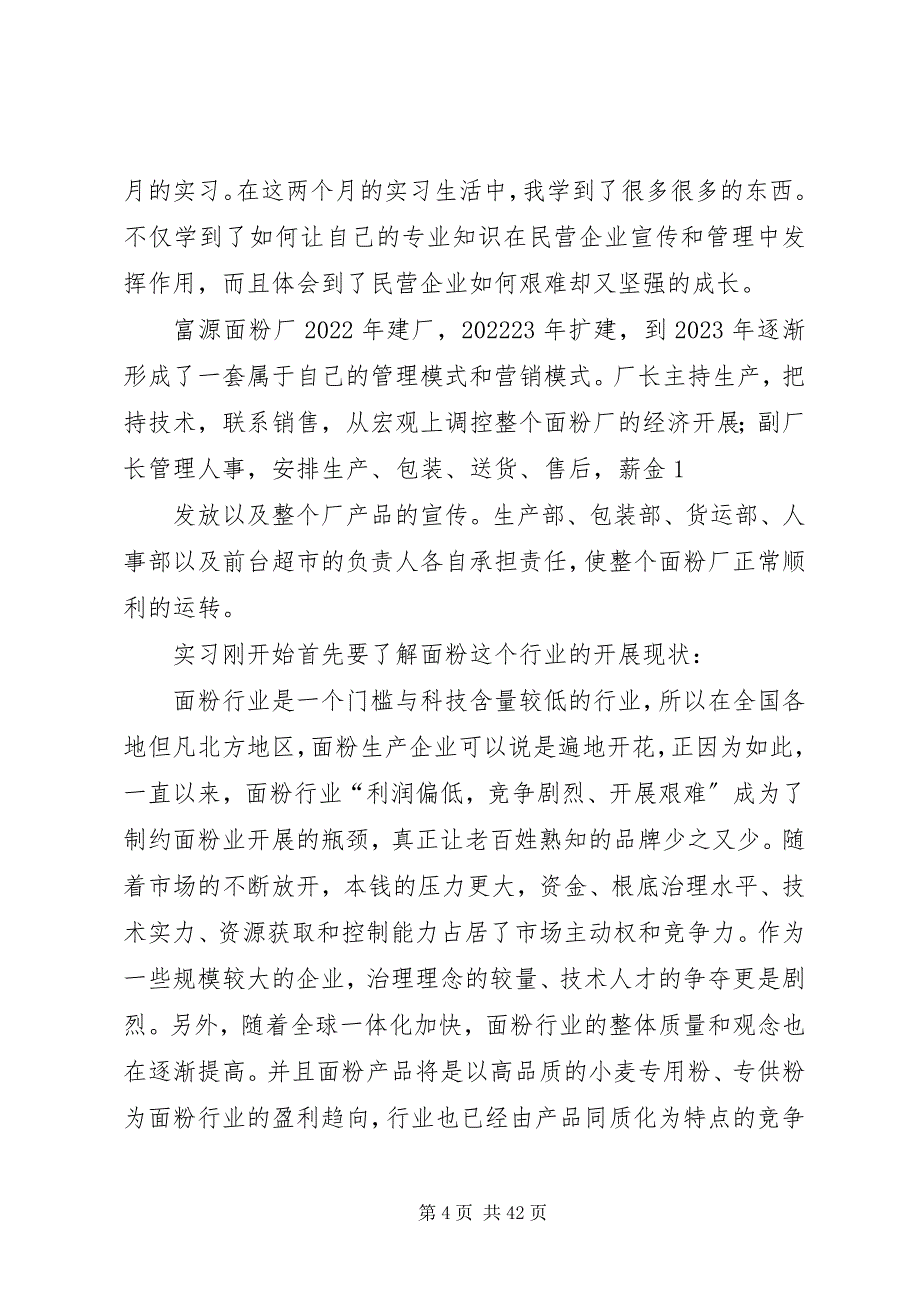 月的实习。在这两个月的实习生活中，我学到了很多很多的东西。
不仅学到了如何让自己的专业知识在民营企业宣传和管理中发
挥作用，而且体会到了民营企业如何艰难却又坚强的成长。
富源面粉厂 2022 年建厂，202223 年扩建，到 2023 年逐渐
形成了一套属于自己的管理模式和营销模式。厂长主持生产，把
持技术，联系销售，从宏观上调控整个面粉厂的经济开展；副厂
长管理人事，安排生产、包装、送货、售后，薪金 1
发放以及整个厂产品的宣传。生产部、包装部、货运部、人
事部以及前台超市的负责人各自承担责任，使整个面粉厂正常顺
利的运转。
实习刚开始首先要了解面粉这个行业的开展现状：
面粉行业是一个门槛与科技含量较低的行业，所以在全国各
地但凡北方地区，面粉生产企业可以说是遍地开花，正因为如此，
一直以来，面粉行业“利润偏低，竞争剧烈、开展艰难〞成为了
制约面粉业开展的瓶颈，真正让老百姓熟知的品牌少之又少。随
着市场的不断放开，本钱的压力更大，资金、根底治理水平、技
术实力、资源获取和控制能力占居了市场主动权和竞争力。作为
一些规模较大的企业，治理理念的较量、技术人才的争夺更是剧
烈。另外，随着全球一体化加快，面粉行业的整体质量和观念也
在逐渐提高。并且面粉产品将是以高品质的小麦专用粉、专供粉
为面粉行业的盈利趋向，行业也已经由产品同质化为特点的竞争
第 4 页 共 42 页